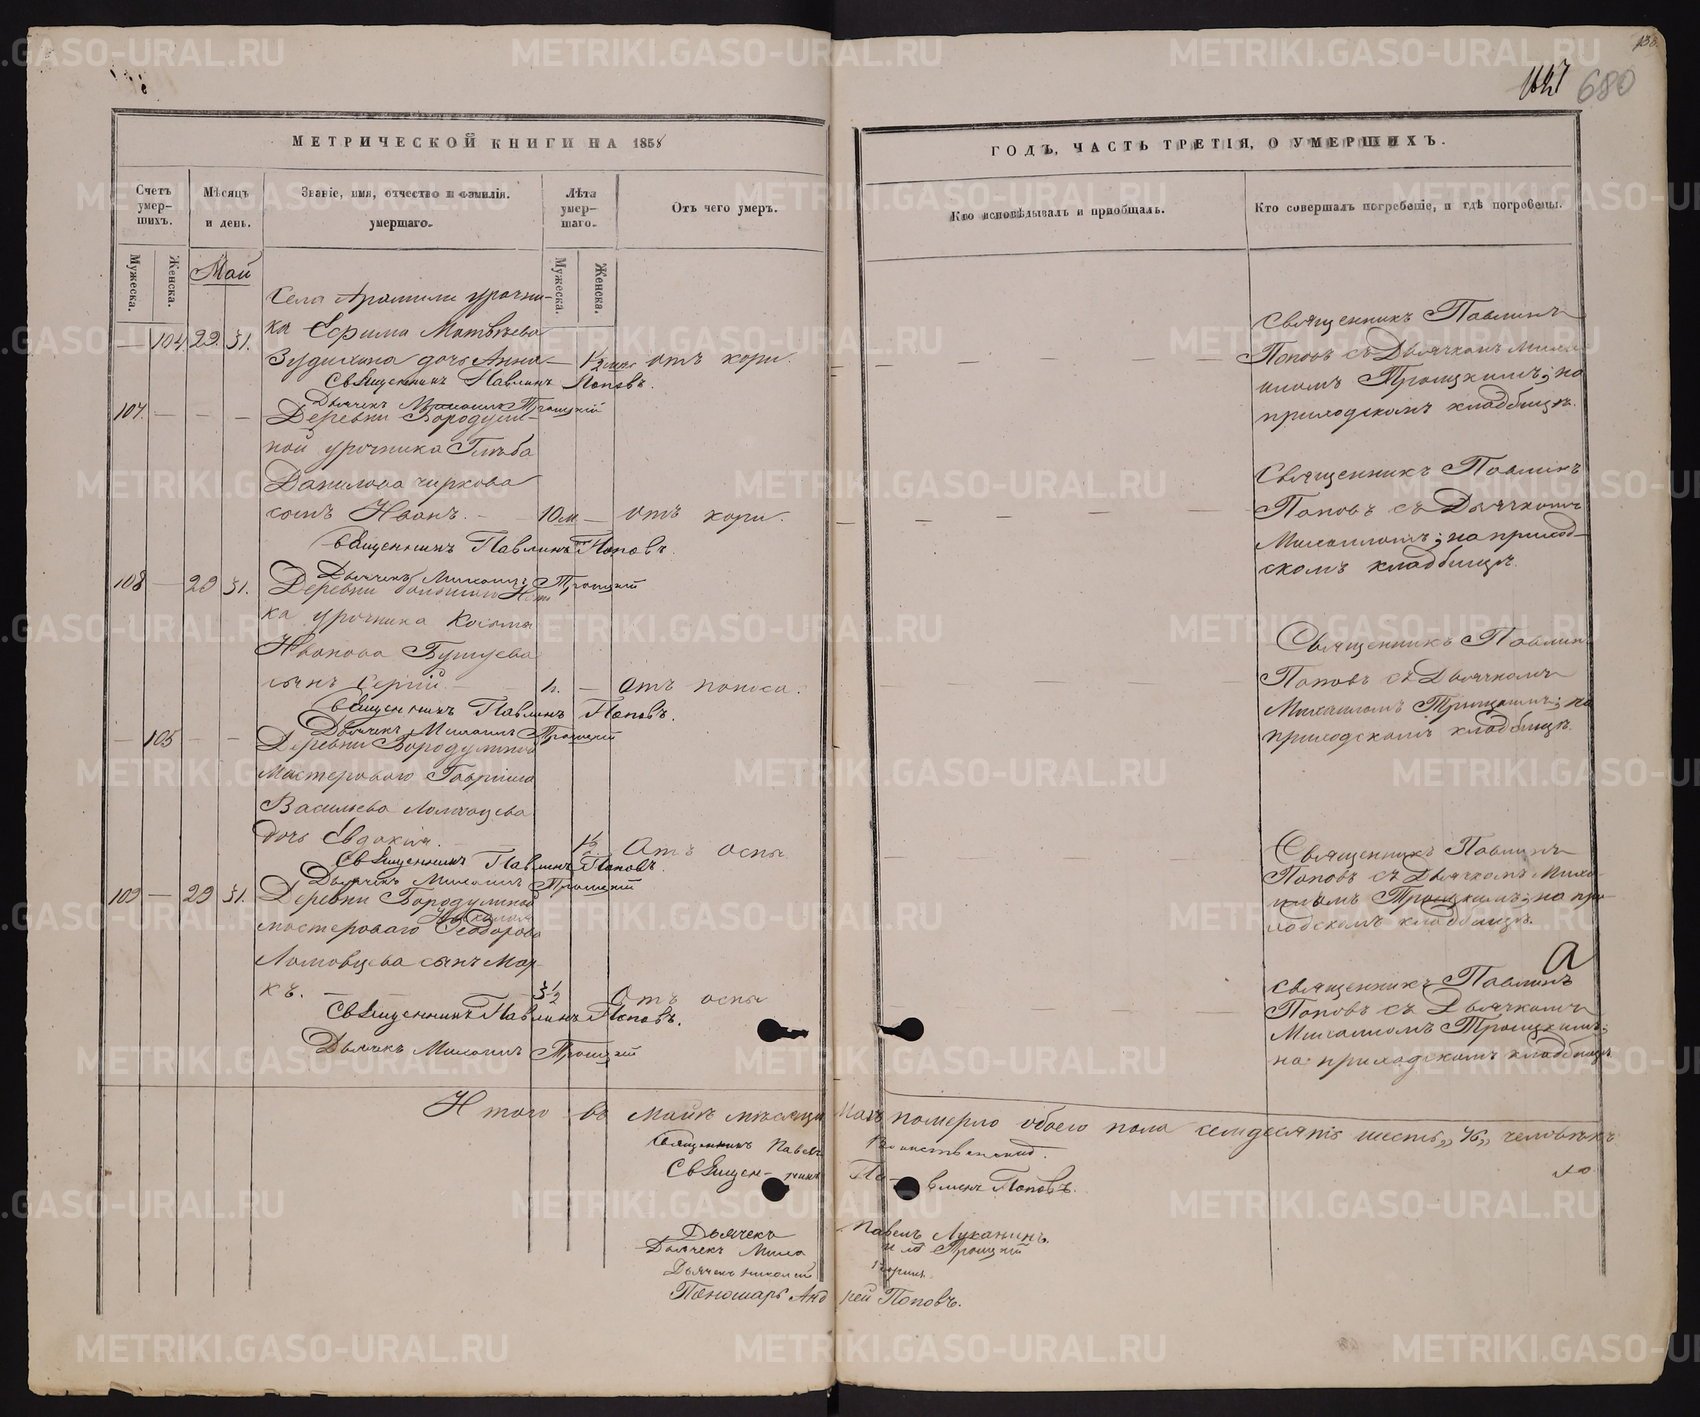 138.
1027
680
МЕТРИЧЕСКОЙ КНИГИ НА 1858
ГОДЪ, ЧАСТЬ ТРЕТІЯ, О УМЕРШИХЪ.
Счетъ умер-шихъ.
Мѣсяцъ и день.
Званіе, имя, отчество и фамилія. умершаго.
Лѣта умер-шаго.
Отъ чего умеръ.
Кто исповѣдывалъ и пріобщалъ.
Кто совершалъ погребеніе, и гдѣ погребены.
Мужеска.
Женска.
Май
Мужеска.
Женска.
Села Арамили урочни-
104 29 31. ка Ефима Матвѣева
Зудихина дочь Анна 1/2 отъ кори.
Священникъ Павлинъ Поповъ.
Дьячекъ Михаилъ Троицкій
Священникъ Павлинъ
Поповъ съ Дьячкомъ Миха-
иломъ Троицкимъ; на
приходскомъ кладбищѣ.
107. Деревни Бородули-
ной урочника Глѣба
Данилова Чиркова
сынъ Иванъ. 10 м отъ кори.
Священникъ Павлинъ Поповъ.
Дьячекъ Михаилъ Троицкій
Священникъ Павлинъ
Поповъ съ Дьячкомъ
Михаиломъ; на приход-
скомъ кладбищѣ.
108 29 31. Деревни
ка урочника Косьмы
Иванова Бушуева
сынъ Сергій. Отъ поноса.
Священникъ Павлинъ Поповъ.
Дьячекъ Михаилъ Троицкій
Священникъ Павлинъ
Поповъ съ Дьячкомъ
Михаиломъ Троицкимъ; на
приходскомъ кладбищѣ.
105 Деревни Бородулиной
мастероваго Гавріила
Васильева
дочь Евдокія. Отъ оспы
Священникъ Павлинъ Поповъ.
Дьячекъ Михаилъ Троицкій
Священникъ Павлинъ
Поповъ съ Дьячкомъ Миха-
иломъ Троицкимъ; на при-
ходскомъ кладбищѣ.
109 29 31. Деревни Бородулиной
мастероваго Ѳеодорова
Ломовцева сынъ Мар-
къ. 3 1/2 Отъ оспы
Священникъ Павлинъ Поповъ.
Дьячекъ Михаилъ Троицкій
Священникъ Павлинъ
Поповъ съ Дьячкомъ
Михаиломъ Троицкимъ;
на приходскомъ кладбищѣ
Итого въ Маѣ мѣсяцѣ померло обоего пола семдесятъ шесть „76„ человѣкъ
Священникъ Павелъ
Священникъ Павлинъ Поповъ.
Дьячекъ Павелъ Луканинъ.
Дьячекъ Михаилъ Троицкій
Дьячекъ Николай
Пономарь Андрей Поповъ.
METRIKI.GASO-URAL.RU